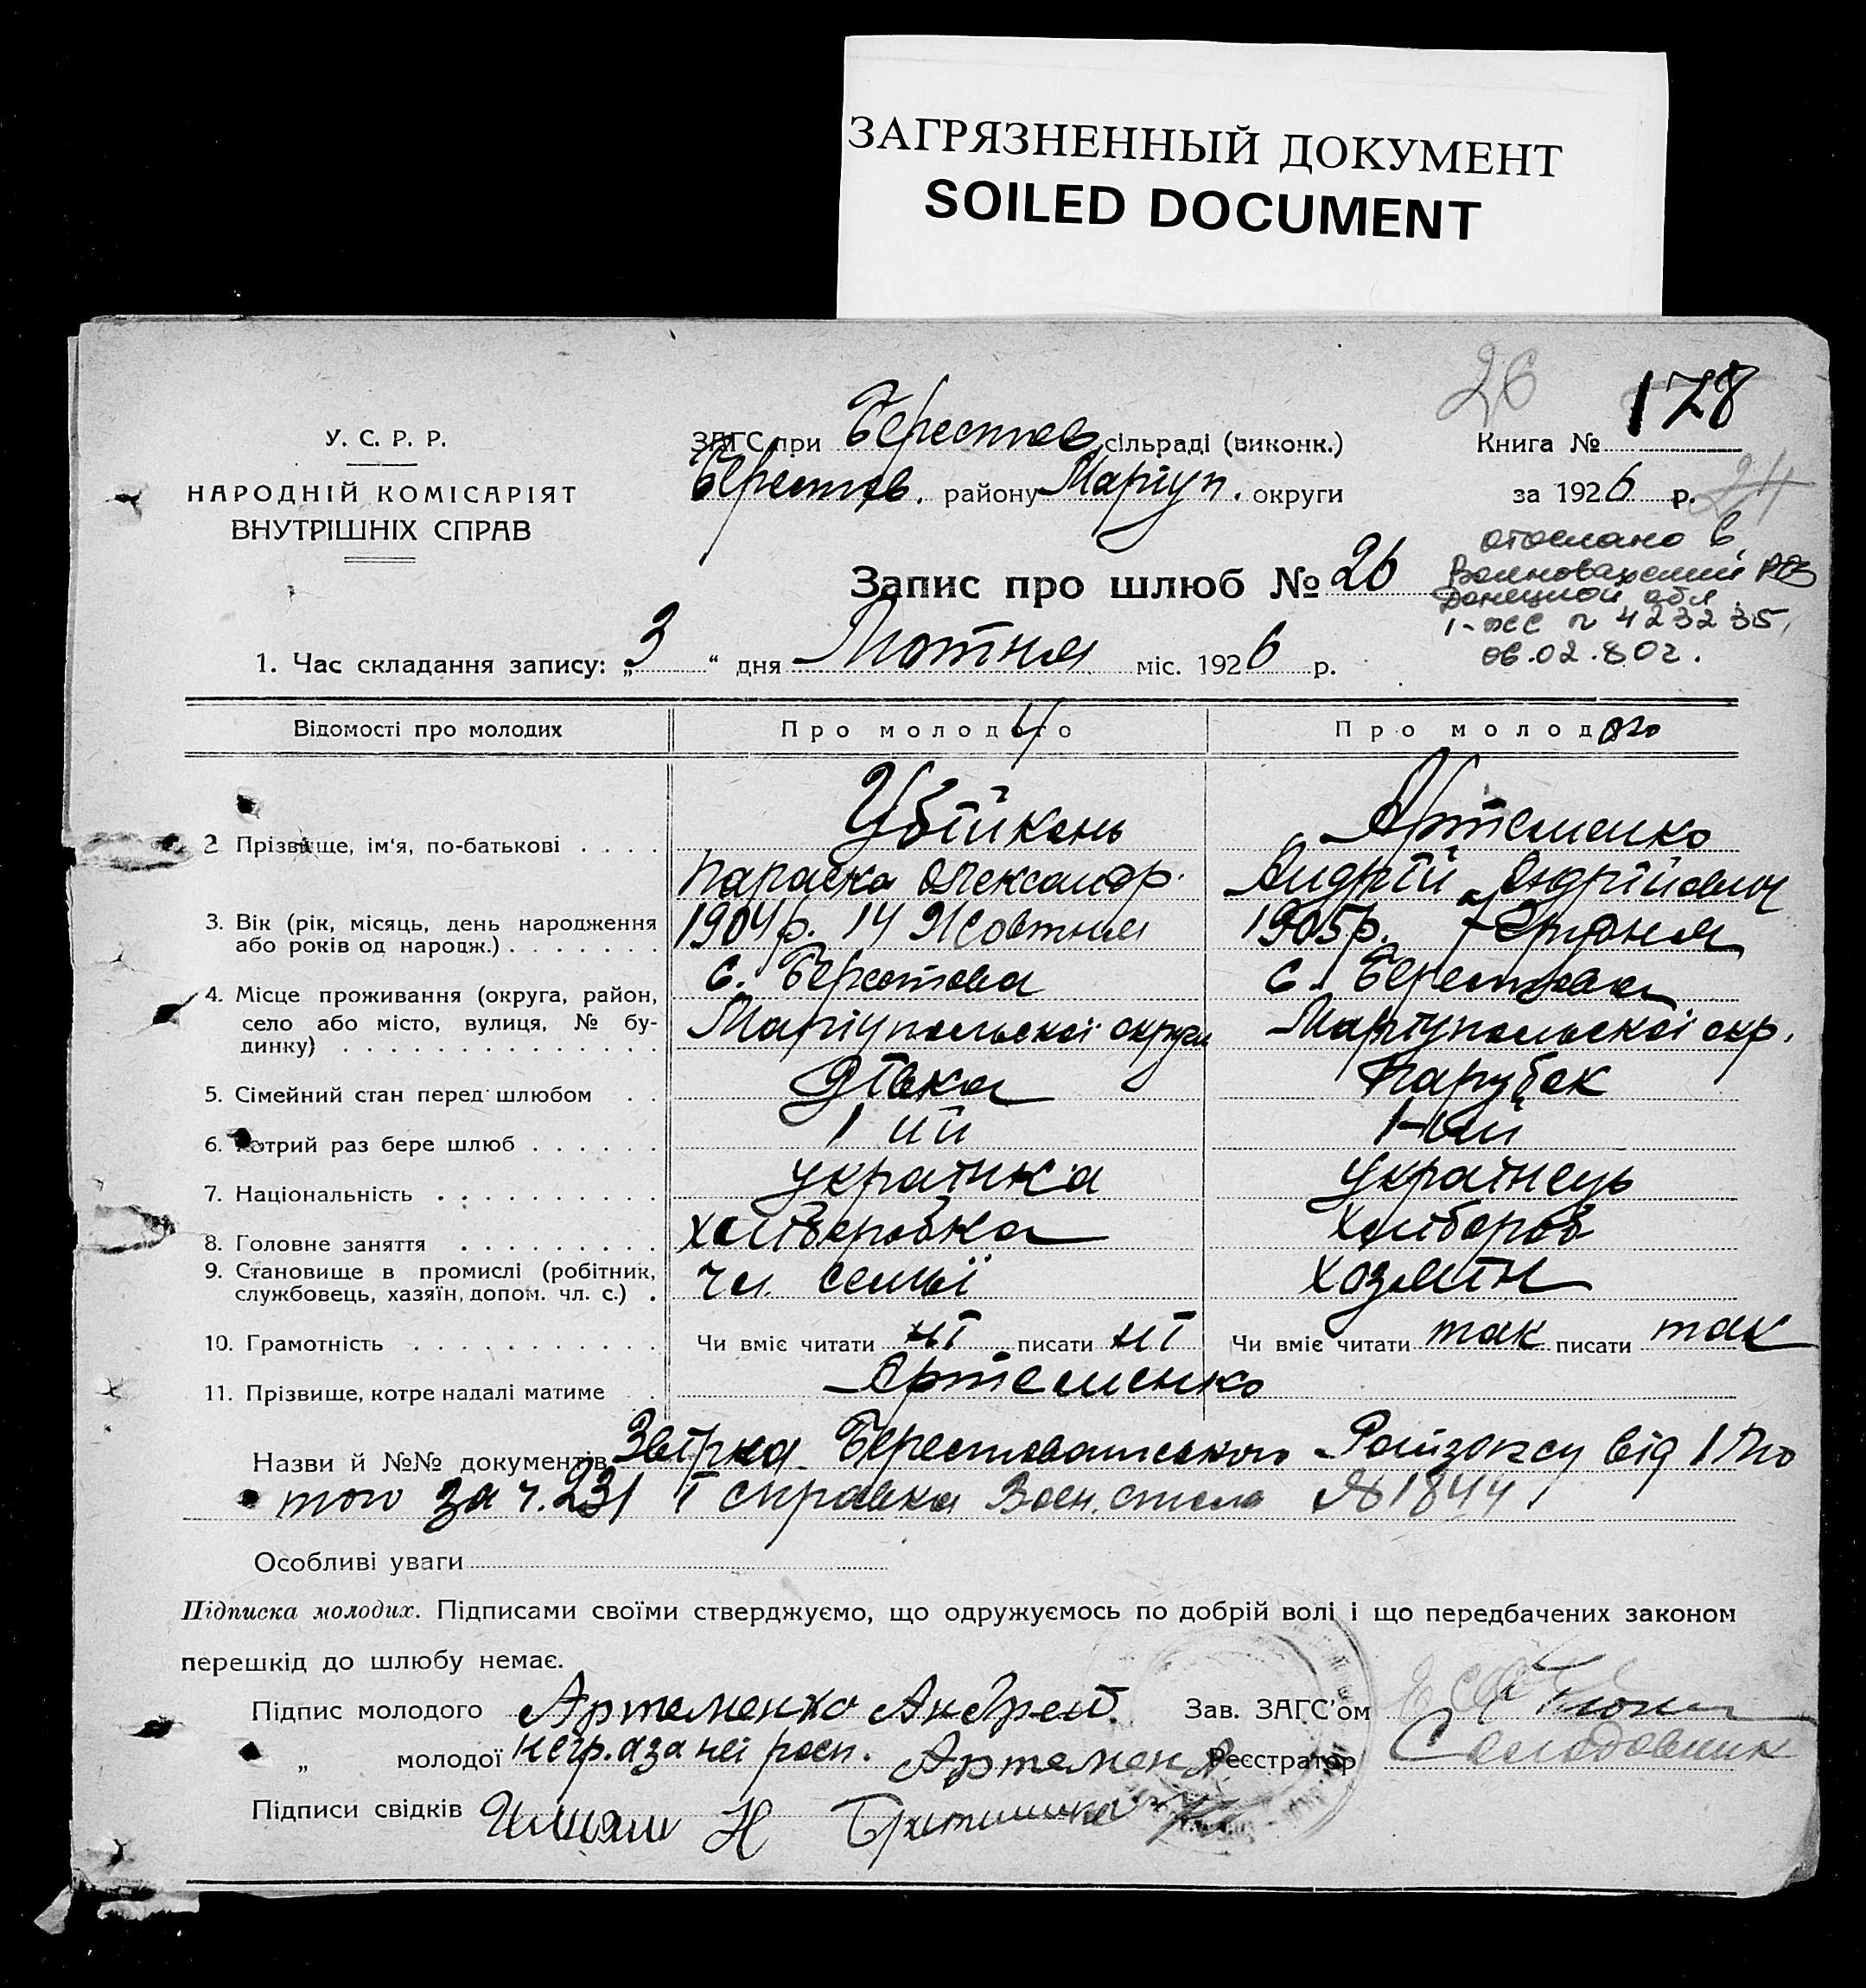 ЗАГРЯЗНЕННЫЙ ДОКУМЕНТ
SOILED DOCUMENT
26 178
У. С. Р. Р.
НАРОДНІЙ КОМІСАРІЯТ
ВНУТРІШНІХ СПРАВ
ЗАГС при Берестов сільраді (виконк.)
Берестов. району Маріуп. округи
Книга №
за 1926 р. 24
отослано в
Волновахский РОЗ
Донецкой обл.
423235,
06.02.80г.
Запис про шлюб № 26
1. Час складання запису: „3“ дня Лютня міс. 1926 р.
Відомості про молодих Про молоду Про молодого
2. Прізвище, ім'я, по-батькові Убійкень Артеменко
Параска Олександр. Андрій Андрійович
3. Вік (рік, місяць, день народження 1904р. 14 Жовтня 1905р.
або років од народж.)
4. Місце проживання (округа, район, с. Берестова с. Берестова
село або місто, вулиця, № бу- Маріупольскої округи Маріупольскої окр.
динку)
5. Сімейний стан перед шлюбом дівка парубок
6. Котрий раз бере шлюб 1 ий 1-ий
7. Національність українка українець
8. Головне заняття хліборобка хлібороб
9. Становище в промислі (робітник, чл. семьї хозяїн
службовець, хазяїн, допом. чл. с.)
10. Грамотність Чи вміє читати ні писати ні Чи вміє читати так писати так
11. Прізвище, котре надалі матиме Артеменко
Назви й №№ документів Звірка Берестоватського Райзагсу від 1 Лю
того за ч. 231 і справка Воен. стола № 1844
Особливі уваги
Підписка молодих. Підписами своїми стверджуємо, що одружуємось по добрій волі і що передбачених законом
перешкід до шлюбу немає.
Підпис молодого Артеменко Андрей. Зав. ЗАГС'ом
„ молодої негр. а за неї росп. Артемен Реєстратор Солодовник
Підписи свідків